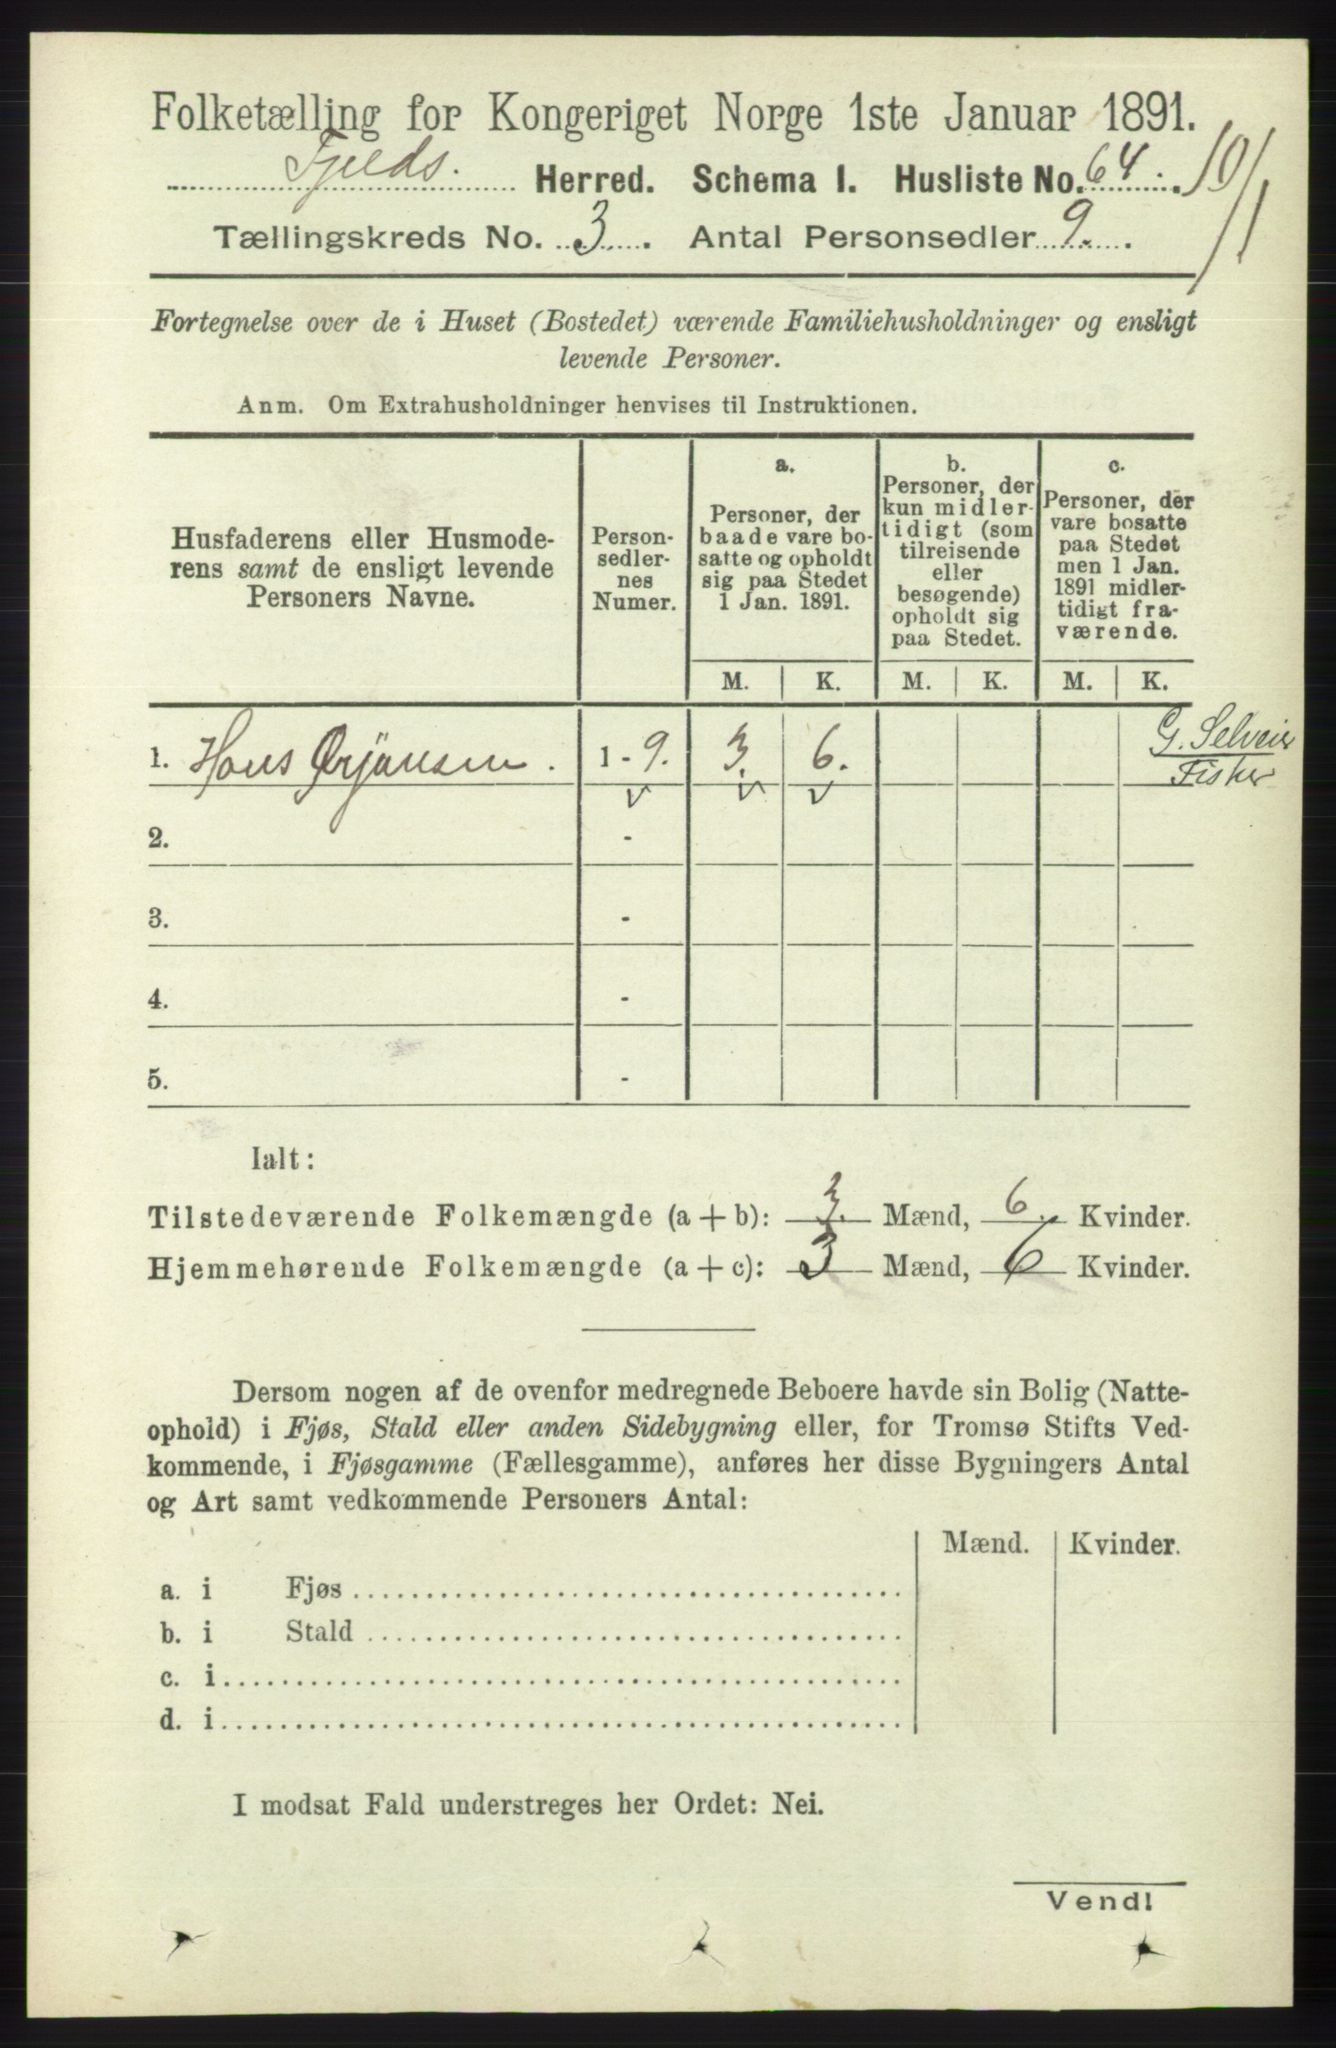 Folketælling for Kongeriget Norge 1ste Januar 1891.
Fjelds. Herred. Schema I. Husliste No. 64. 10/1
Tællingskreds No. 3. Antal Personsedler 9.
Fortegnelse over de i Huset (Bostedet) værende Familiehusholdninger og ensligt
levende Personer.
Anm. Om Extrahusholdninger henvises til Instruktionen.
Husfaderens eller Husmode-
rens samt de ensligt levende
Personers Navne.
Person-
sedler-
nes
Numer.
a.
Personer, der
baade vare bo-
satte og opholdt
sig paa Stedet
1 Jan. 1891.
b.
Personer, der
kun midler-
tidigt (som
tilreisende
eller
besøgende)
opholdt sig
paa Stedet.
c.
Personer, der
vare bosatte
paa Stedet
men 1 Jan.
1891 midler-
tidigt fra-
værende.
M. K. M. K. M. K.
1. Hans Ørjansen. 1 - 9. 3. 6. G. Selveier
Fisker
v v v
2. -
3. -
4. -
5. -
Ialt:
Tilstedeværende Folkemængde (a + b): 3. Mænd, 6. Kvinder.
Hjemmehørende Folkemængde (a + c): 3 Mænd, 6 Kvinder.
Dersom nogen af de ovenfor medregnede Beboere havde sin Bolig (Natte-
ophold) i Fjøs, Stald eller anden Sidebygning eller, for Tromsø Stifts Ved-
kommende, i Fjøsgamme (Fællesgamme), anføres her disse Bygningers Antal
og Art samt vedkommende Personers Antal:
Mænd. Kvinder.
a. i Fjøs
b. i Stald
c. i
d. i
I modsat Fald understreges her Ordet: Nei.
Vend!